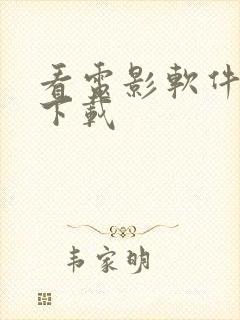 看電影軟件
下載
韦家明